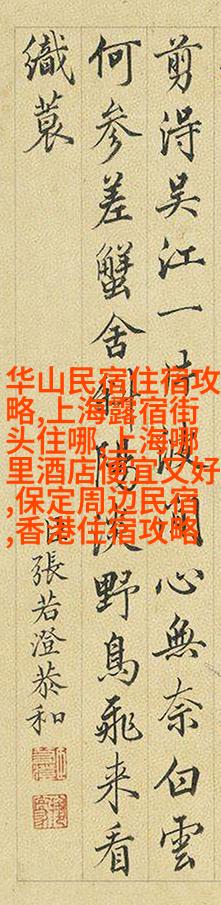 剪淂吴江一片波閒心無奈白雲
何参差蟹舍斜陽淡野鳥飛来看
織蓑
臣張若澄恭和
华山民宿住宿攻
略,上海露宿街
头住哪,上海哪
里酒店便宜又好
,保定周边民宿
,香港住宿攻略